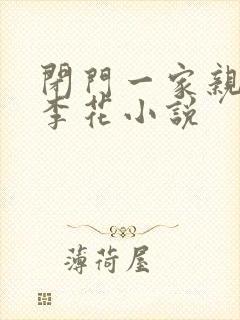 閉門一家親
李花小説
薄荷屋